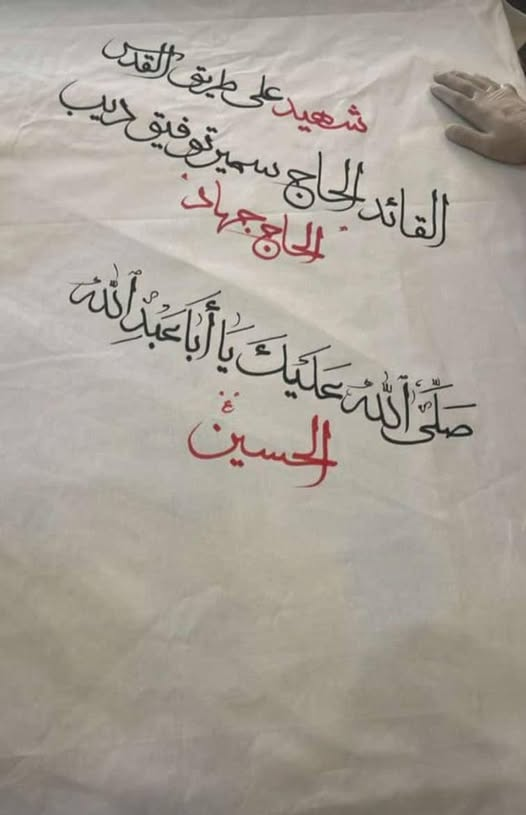 شهيد على طريق القدس
القائد الحاج سمير توفيق ديب
"الحاج جهاد"
صَلَّى ٱللهُ عَلَيْكَ يَا أَبَا عَبْدِ ٱللهِ
الحسين (ع)